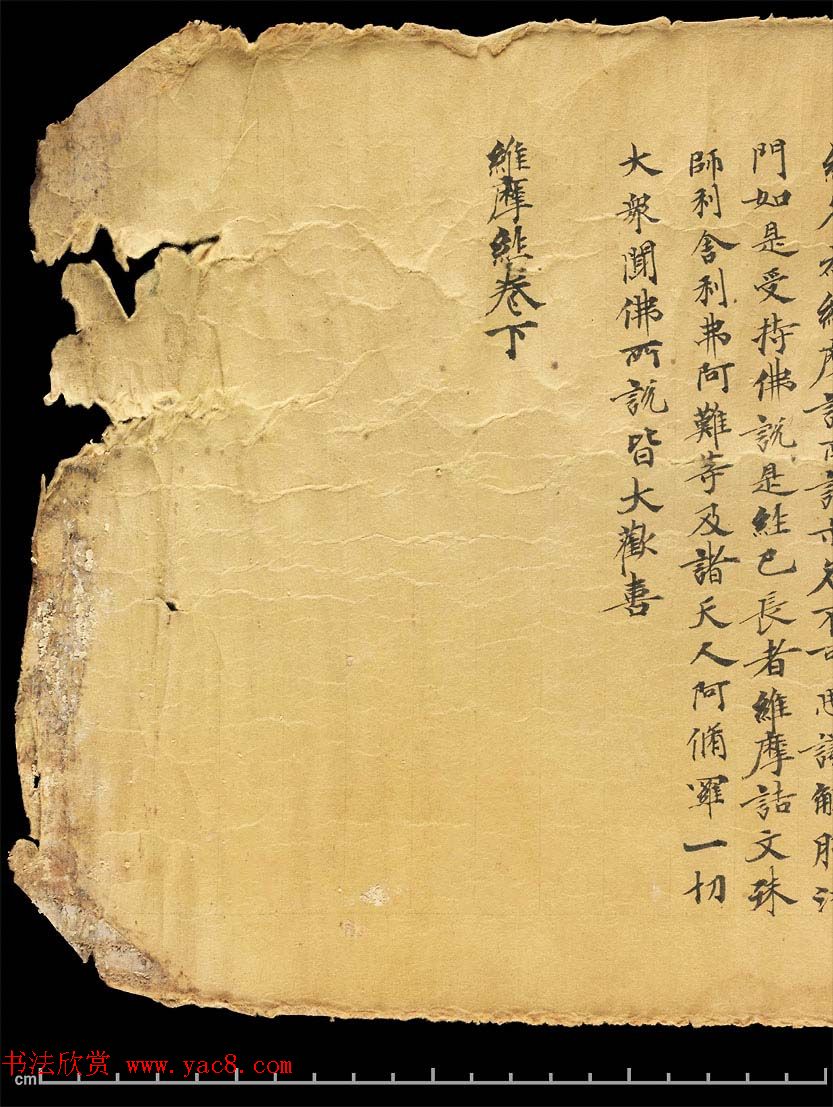 維摩詰所說亦名不可思議解脫法
門如是受持佛說是經已長者維摩詰文殊
師利舍利弗阿難等及諸天人阿脩羅一切
大衆聞佛所說皆大歡喜
維摩經卷下
书法欣赏 www.yac8.com
cm